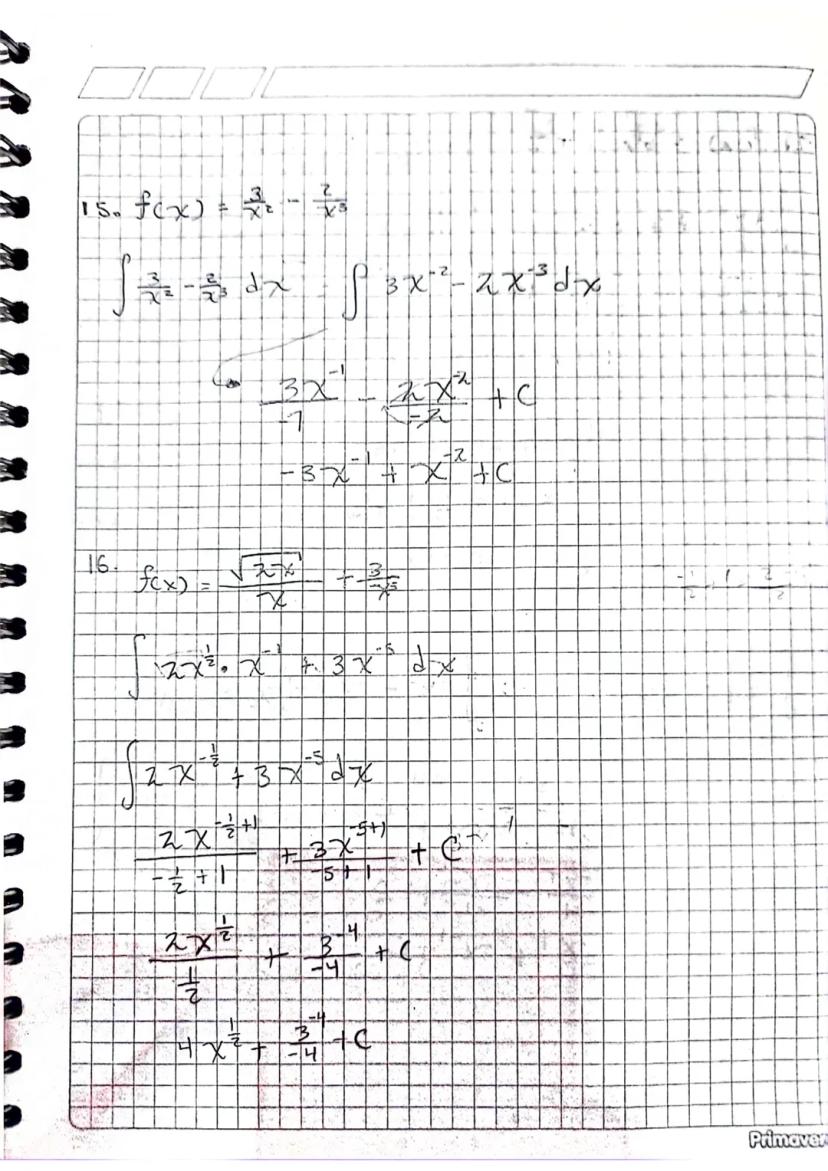 15. f(x) = 3/x² - 2/x³
∫ 3/x² - 2/x³ dx ∫ 3x⁻² - 2x⁻³ dx
3x⁻¹/-1 - 2x⁻²/-2 + C
-3x⁻¹ + x⁻² + C
16. f(x) = √(2x)/x + 3/x⁵
∫ 2x^(1/2) • x⁻¹ + 3x⁻⁵ dx
∫ 2x^(-1/2) + 3x⁻⁵ dx
2x^(-1/2+1)/(-1/2+1) + 3x^(-5+1)/(-5+1) + C
2x^(1/2)/(1/2) + 3⁻⁴/-4 + C
4x^(1/2) + 3⁻⁴/-4 + C
Primaver